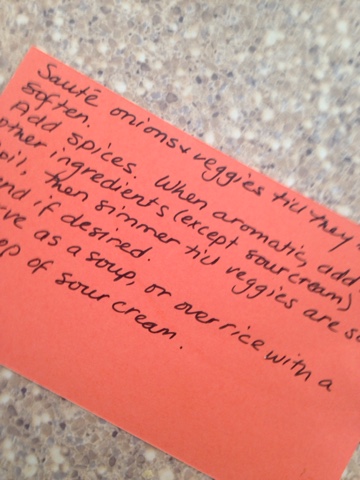 Sauté onions & veggies till they
soften.
Add spices. When aromatic, add
other ingredients (except sour cream)
oil, then simmer till veggies are so
nd if desired.
rve as a soup, or over rice with a
op of sour cream.